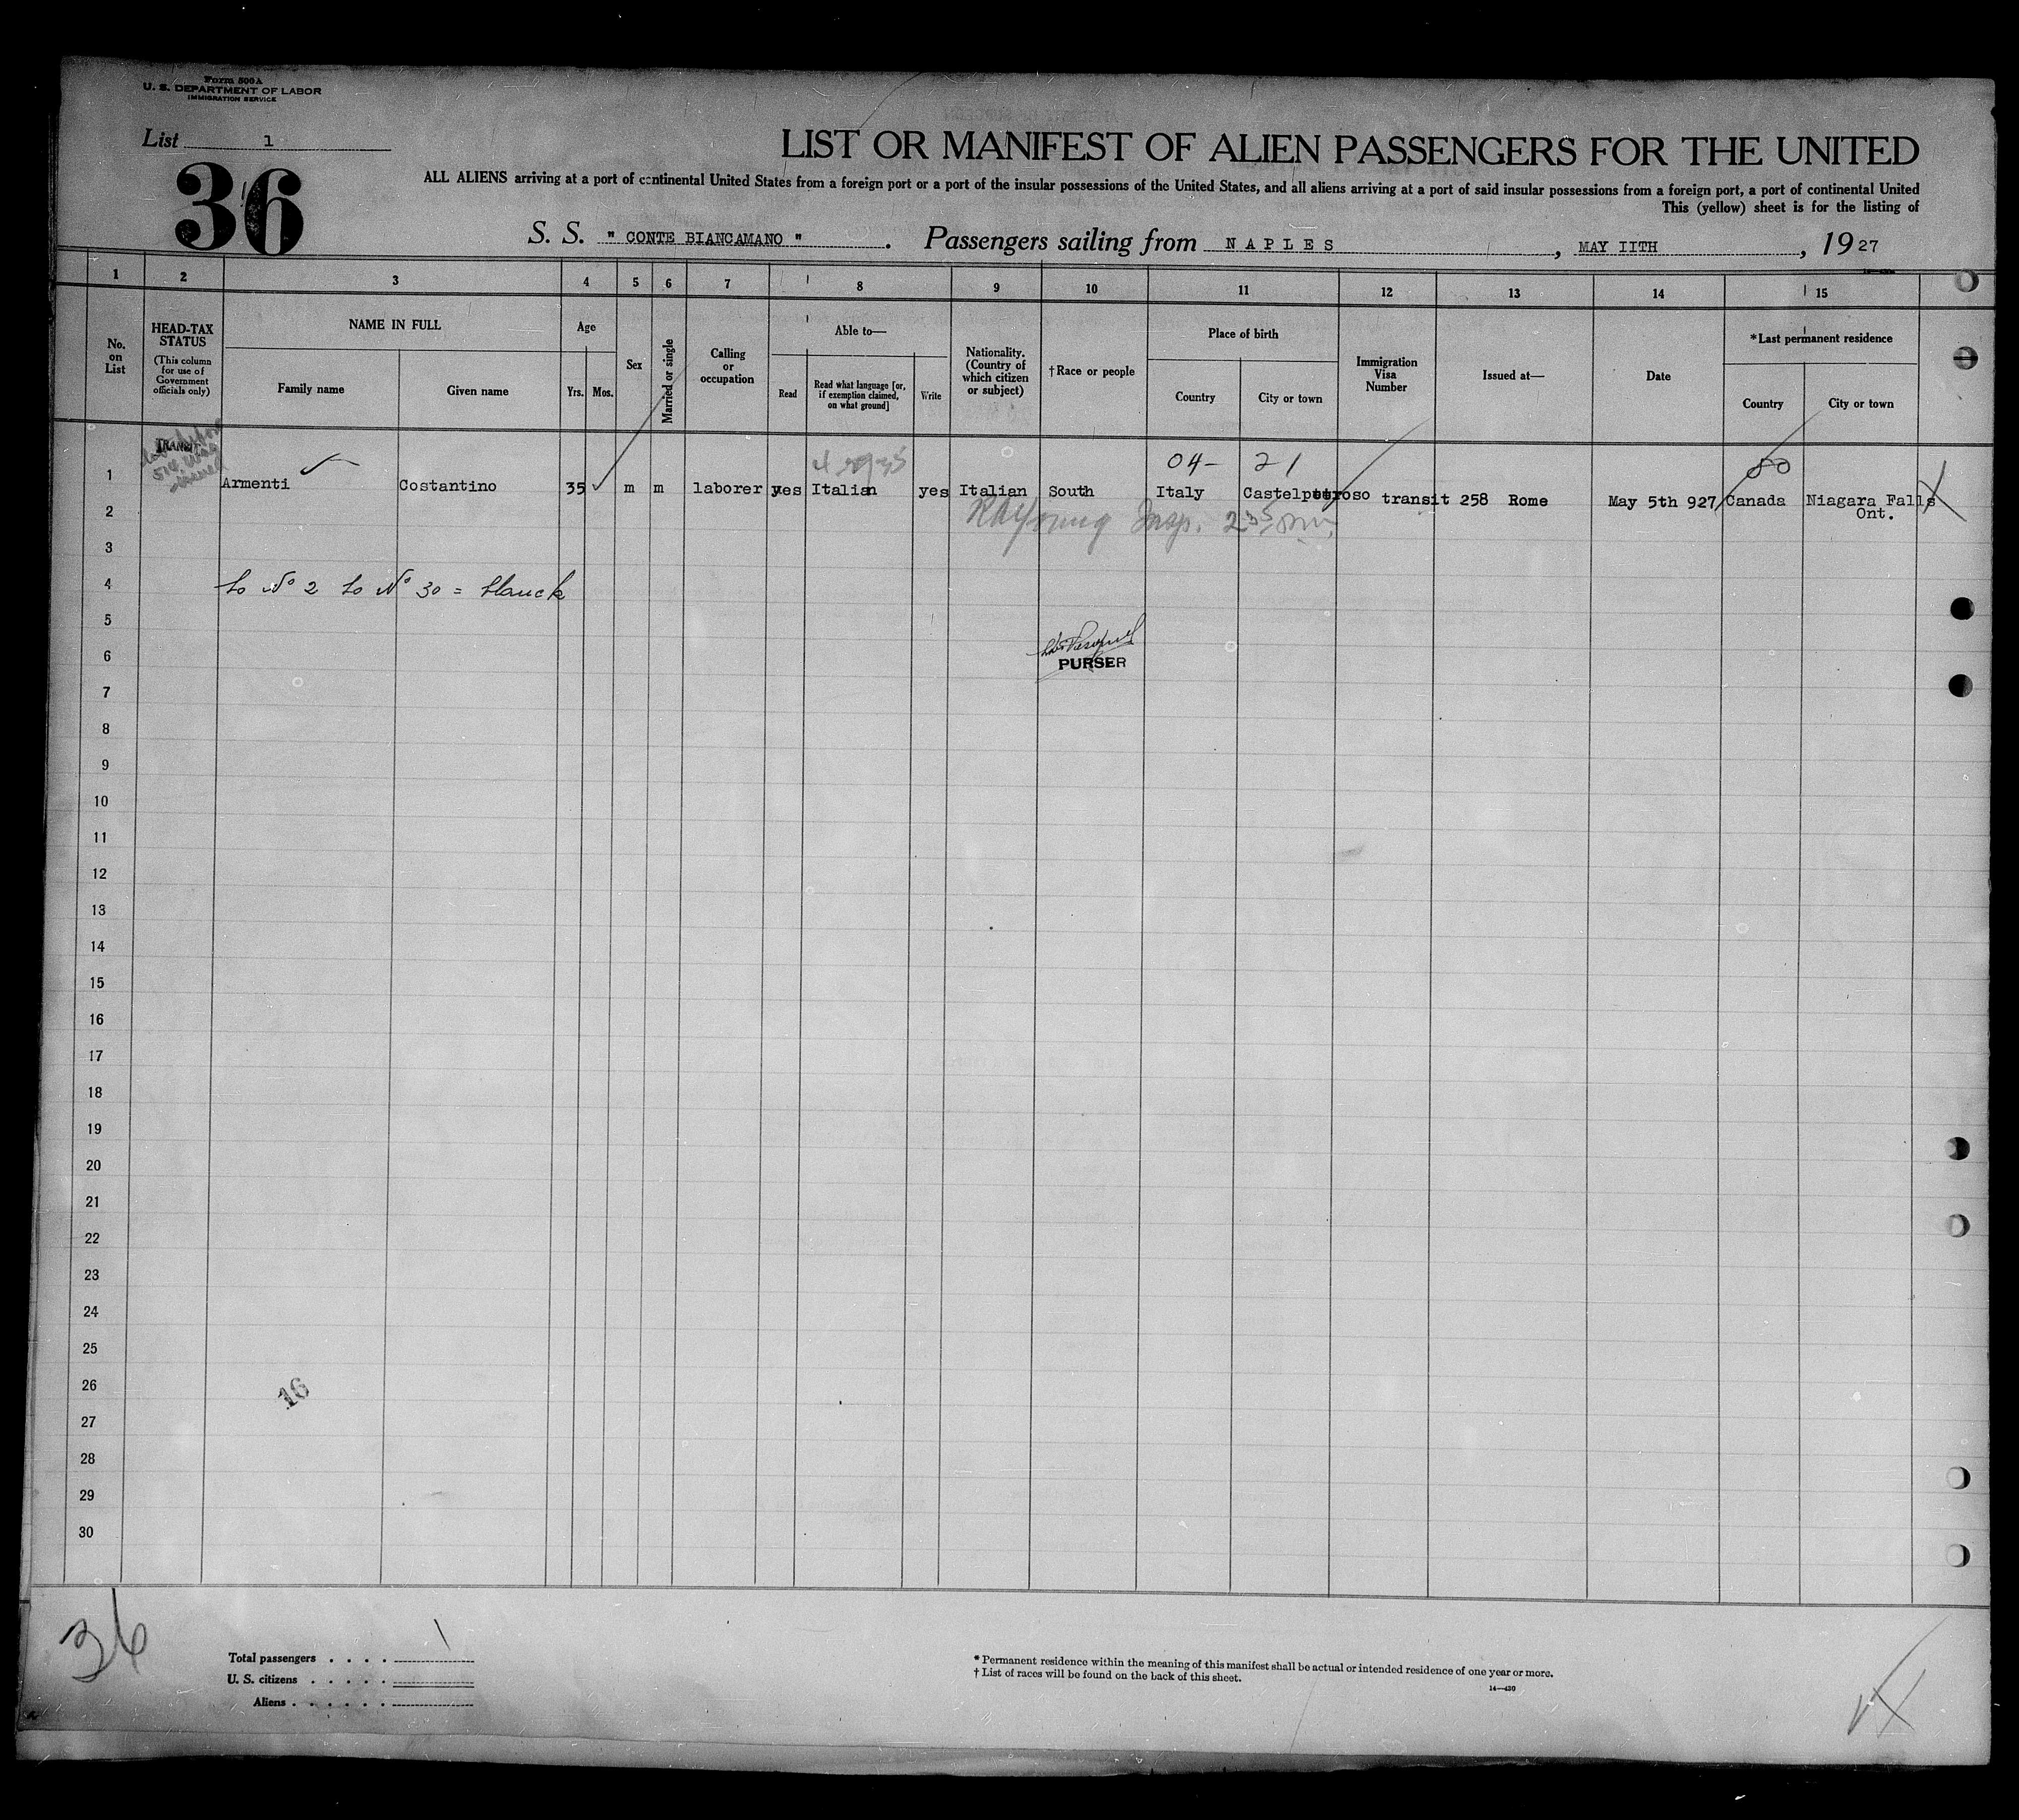 Form 500A
U. S. DEPARTMENT OF LABOR
IMMIGRATION SERVICE
List 1
36
LIST OR MANIFEST OF ALIEN PASSENGERS FOR THE UNITED
ALL ALIENS arriving at a port of continental United States from a foreign port or a port of the insular possessions of the United States, and all aliens arriving at a port of said insular possessions from a foreign port, a port of continental United
This (yellow) sheet is for the listing of
S. S. " CONTE BIANCAMANO ". Passengers sailing from NAPLES, MAY IITH, 1927
1 2 3 4 5 6 7 8 9 10 11 12 13 14 15
No. on List
HEAD-TAX STATUS
(This column for use of Government officials only)
NAME IN FULL
Family name
Given name
Age
Yrs.
Mos.
Sex
Married or single
Calling or occupation
Able to—
Read
Read what language [or, if exemption claimed, on what ground]
Write
Nationality. (Country of which citizen or subject)
†Race or people
Place of birth
Country
City or town
Immigration Visa Number
Issued at—
Date
*Last permanent residence
Country
City or town
TRANSIT
04- 21
80
1 Armenti Costantino 35 m m laborer yes Italian yes Italian South Italy Castelpetroso transit 258 Rome May 5th 927 Canada Niagara Falls
Ont.
2
Insp.
3
4 to No 2 to No 30 =
5
6
PURSER
7
8
9
10
11
12
13
14
15
16
17
18
19
20
21
22
23
24
25
26
16
27
28
29
30
36
Total passengers . . . . 1
U. S. citizens . . . . .
Aliens . . . . . .
* Permanent residence within the meaning of this manifest shall be actual or intended residence of one year or more.
† List of races will be found on the back of this sheet.
14—430